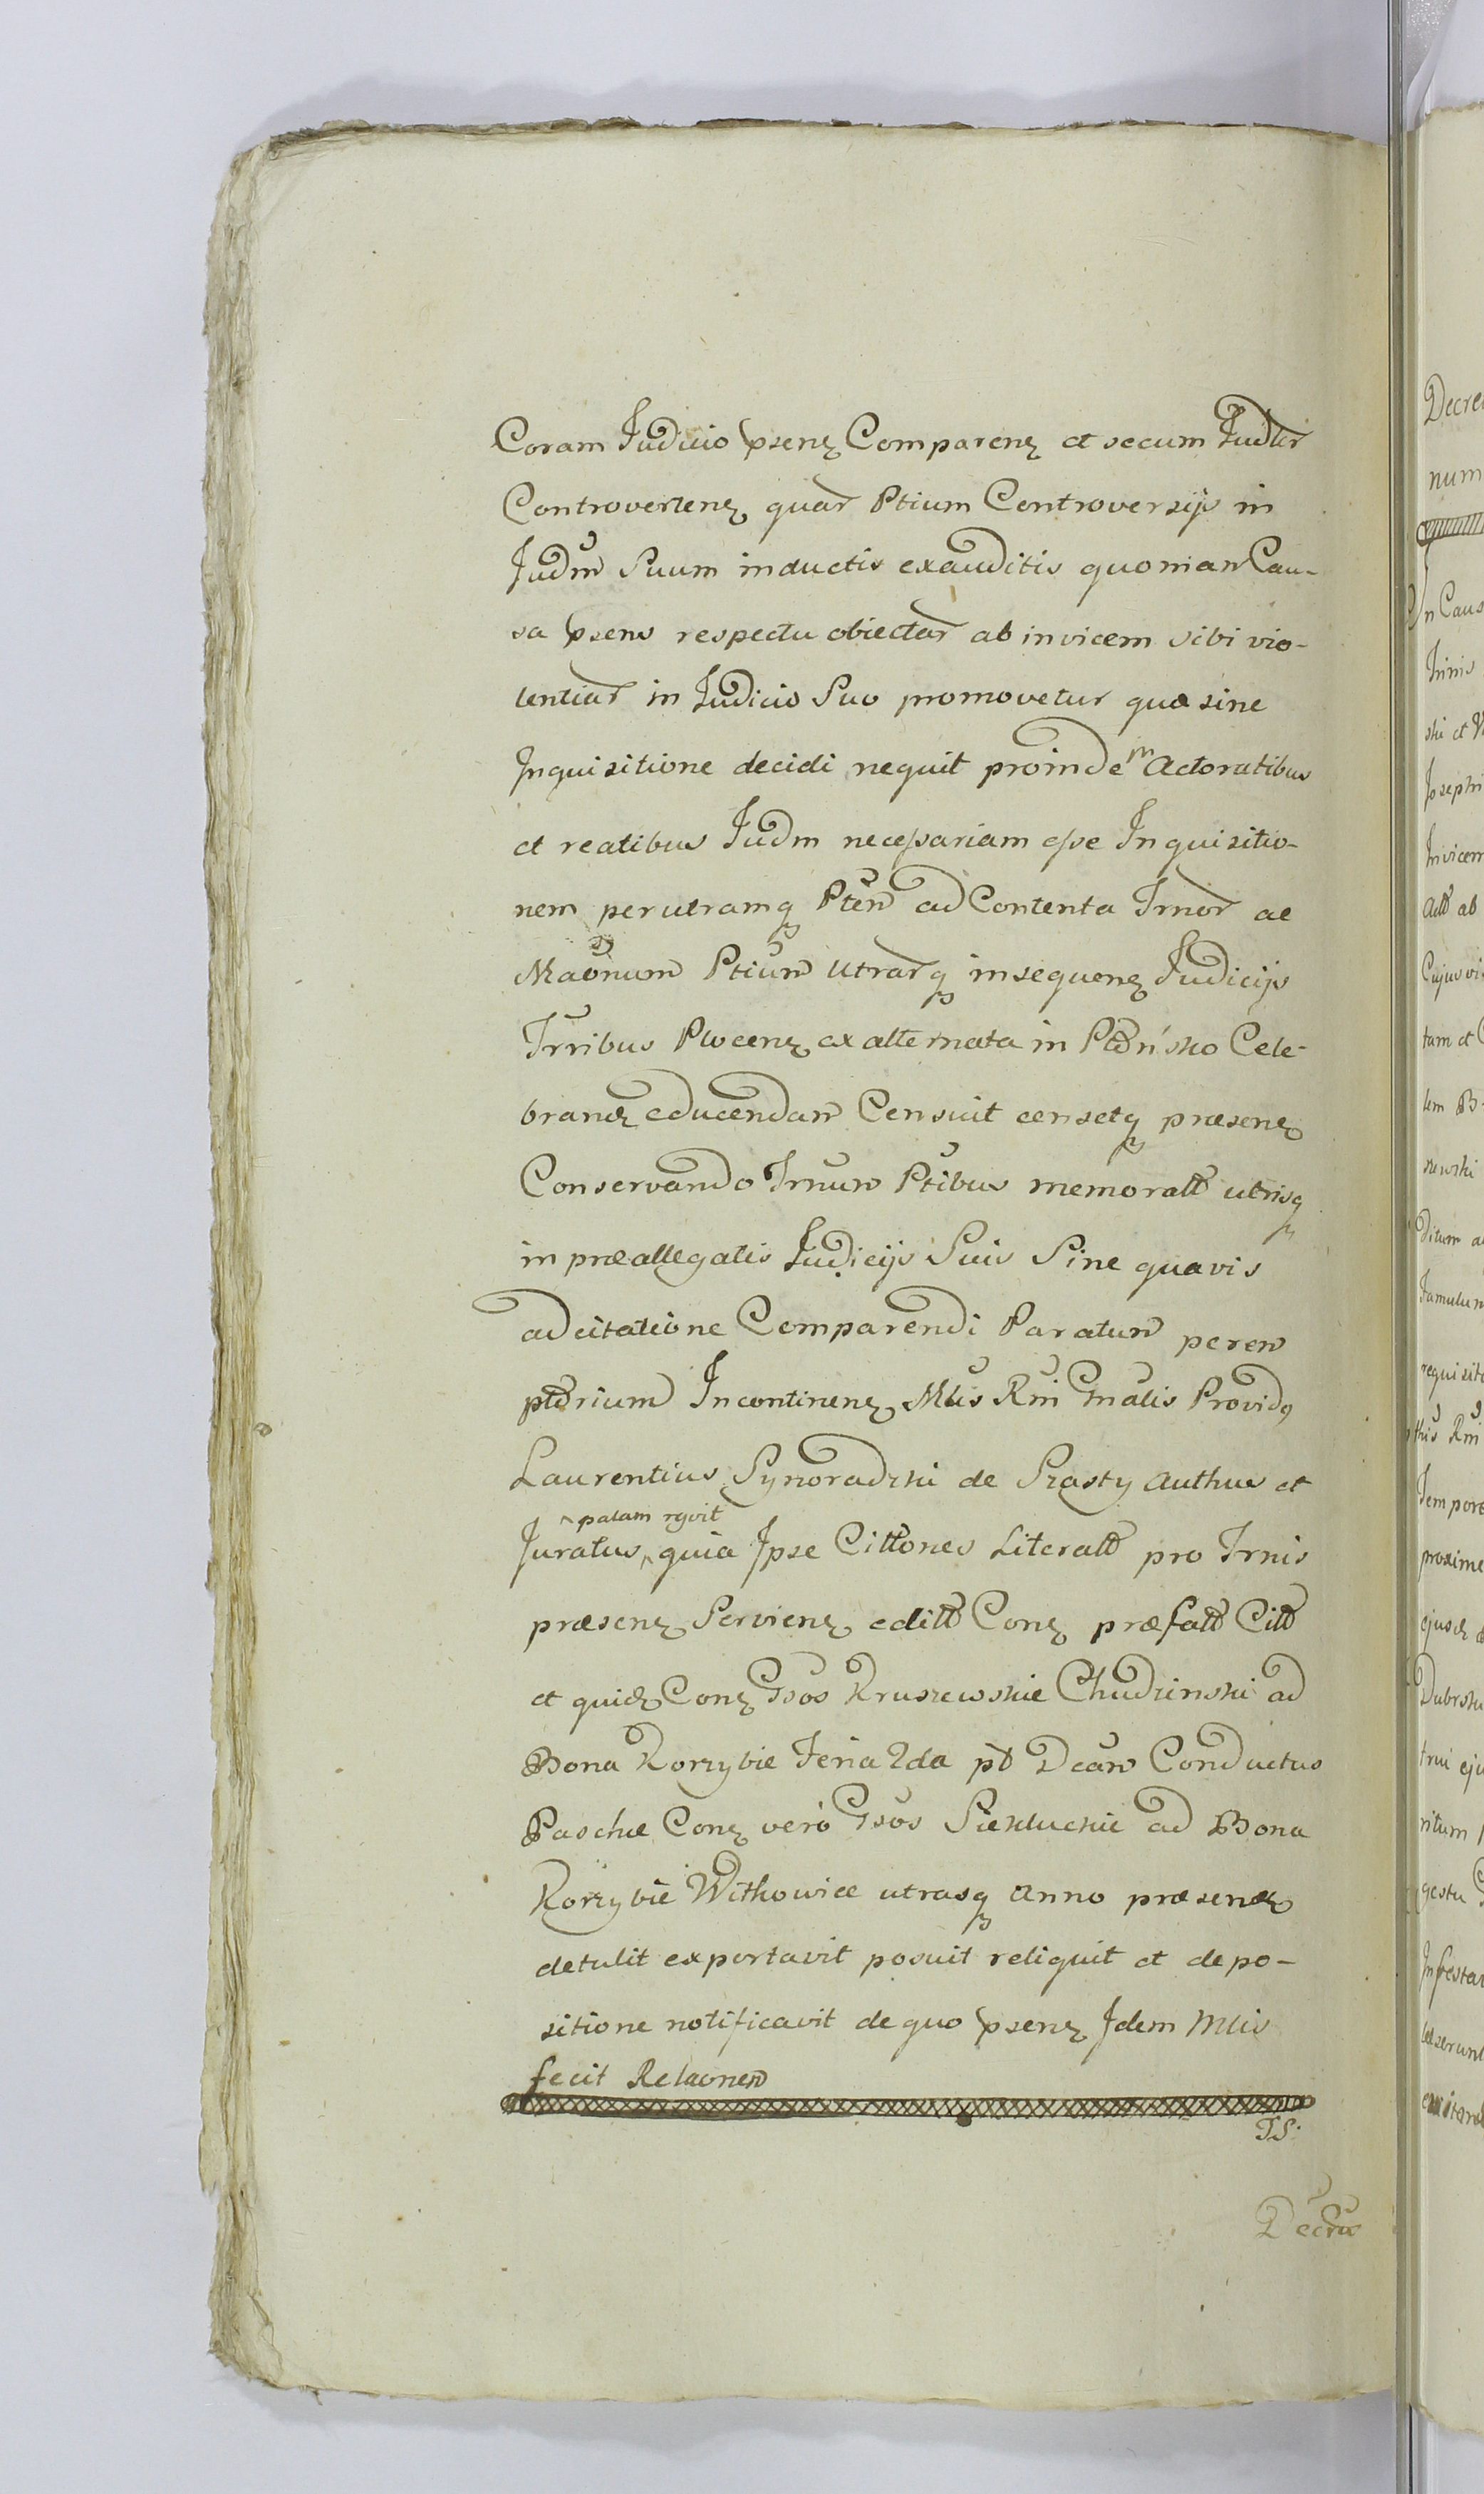 Coram Judicio psenz Comparenz et secum Judlr
Controvertenz quar Ptium Controversijs in
Judm Suum inductis exauditis quoniam Cau-
sa psens respectu obiectar ab invicem sibi vio-
lentiar in Judicio Suo promovetur quæ sine
Inquisitione decidi nequit proinde in Actoratibus
et reatibus Judm necessariam esse Inquisitio-
nem per utramq Ptem ad Contenta Trnor ac
Maonum Ptium utrarq in sequenz Judicijs
Trribus Plocenz ex alternata in Płońsko Cele-
brand educendam Censuit censetq præsenz
Conservando Trnum Ptibus memoratt utrisq
in præallegatis Judicijs Suis Sine quavis
adcitatione Comparendi Paratum perem
ptorium Incontinenz Mlis Rni Gnalis Providq
Laurentius Synoradzki de Szasty Authus et
Juratus palam rgvit quia Ipse Cittones Literatt pro Trnis
præsenz Servienz editt Conz præfatt Citt
et quid Conz Gsos Kruszewskie Chudzinski ad
Bona Korzybie Feria 2da pt Dcam Conductus
Paschæ Conz vero Gsos Siekluckie ad Bona
Korzybie Witkowice utrasq Anno præsenz
detulit exportavit posuit reliquit et depo-
sitione notificavit de quo psenz Idem Mlis
fecit Relaonem
TS.
Decru
Decre
num
In Caus
Trnis
ski et
Josephi
Invicem
Actt ab
Cujusvi
tum et
lem B
szewski
ditum a
Famulum
requisit
Rni
Tempore
proxime
ejusd
Dubrsk
trui eju
ritum
gestu
Infesta